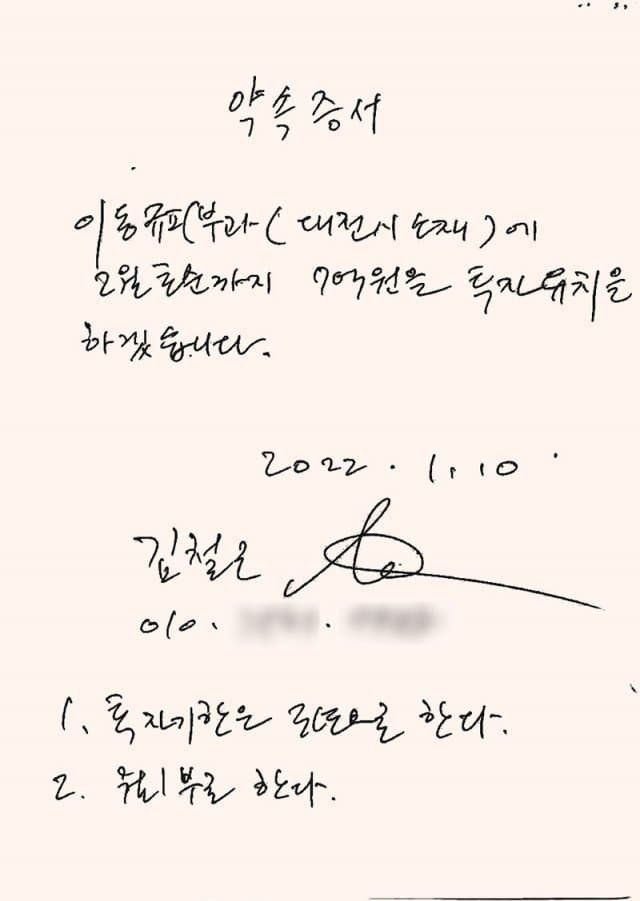 약속증서
이동규피부과(대전시 소재)에
2월 초순까지 7억원을 투자유치를
하겠습니다.
2022. 1. 10
김철근
010.
1. 투자기한은 3년으로 한다.
2. 월 1부로 한다.